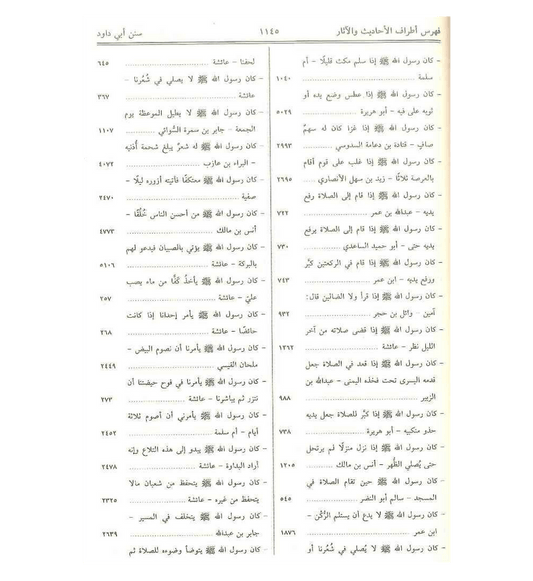 فهرس أطراف الأحاديث والآثار
١١٤٥
سنن أبي داود
- كان رسول الله ﷺ إذا سلم مكث قليلًا - أم
سلمة ١٠٤٠
- كان رسول الله ﷺ إذا عطس وضع يده أو
ثوبه على فيه - أبو هريرة ٥٠٢٩
- كان رسول الله ﷺ إذا غزا كان له سهمٌ
صافٍ - قتادة بن دعامة السدوسي ٢٩٩٣
- كان رسول الله ﷺ إذا غلب على قوم أقام
بالعرصة ثلاثًا - زيد بن سهل الأنصاري ٢٦٩٥
- كان رسول الله ﷺ إذا قام إلى الصلاة رفع
يديه - عبدالله بن عمر ٧٢٢
- كان رسول الله ﷺ إذا قام إلى الصلاة يرفع
يديه حتى - أبو حميد الساعدي ٧٣٠
- كان رسول الله ﷺ إذا قام في الركعتين كبَّر
ورفع يديه - ابن عمر ٧٤٣
- كان رسول الله ﷺ إذا قرأ ولا الضالين قال:
آمين - وائل بن حجر ٩٣٢
- كان رسول الله ﷺ إذا قضى صلاته من آخر
الليل نظر - عائشة ١٢٦٢
- كان رسول الله ﷺ إذا قعد في الصلاة جعل
قدمه اليسرى تحت فخذه اليمنى - عبدالله بن
الزبير ٩٨٨
- كان رسول الله ﷺ إذا كبَّر للصلاة جعل يديه
حذو منكبيه - أبو هريرة ٧٣٨
- كان رسول الله ﷺ إذا نزل منزلًا لم يرتحل
حتى يُصلي الظُهر - أنس بن مالك ١٢٠٥
- كان رسول الله ﷺ حين تقام الصلاة في
المسجد - سالم أبو النضر ٥٤٥
- كان رسول الله ﷺ لا يدع أن يستلم الرُّكن -
ابن عمر ١٨٧٦
- كان رسول الله ﷺ لا يُصلي في شُعُرنا أو
لحفنا - عائشة ٦٤٥
- كان رسول الله ﷺ لا يصلي في شُعُرنا -
عائشة ٣٦٧
- كان رسول الله ﷺ لا يطيل الموعظة يوم
الجمعة - جابر بن سمرة السُّوائي ١١٠٧
- كان رسول الله ﷺ له شعرٌ يبلغ شحمة أُذنيه
- البراء بن عازب ٤٠٧٢
- كان رسول الله ﷺ معتكفًا فأتيته أزوره ليلًا -
صفية ٢٤٧٠
- كان رسول الله ﷺ من أحسن الناس خُلُقًا -
أنس بن مالك ٤٧٧٣
- كان رسول الله ﷺ يؤتي بالصبيان فيدعو لهم
بالبركة - عائشة ٥١٠٦
- كان رسول الله ﷺ يأخذُ كفًّا من ماء يصب
عليَّ - عائشة ٢٥٧
- كان رسول الله ﷺ يأمر إحدانا إذا كانت
حائضًا - عائشة ٢٦٨
- كان رسول الله ﷺ يأمرنا أن نصوم البيض -
ملحان القيسي ٢٤٤٩
- كان رسول الله ﷺ يأمرنا في فوح حيضتنا أن
نتزر ثم يباشرنا - عائشة ٢٧٣
- كان رسول الله ﷺ يأمرني أن أصوم ثلاثة
أيام - أم سلمة ٢٤٥٢
- كان رسول الله ﷺ يبدو إلى هذه التلاع وإنه
أراد البداوة - عائشة ٢٤٧٨
- كان رسول الله ﷺ يتحفظ من شعبان مالا
يتحفظ من غيره - عائشة ٢٣٢٥
- كان رسول الله ﷺ يتخلف في المسير -
جابر بن عبدالله ٢٦٣٩
- كان رسول الله ﷺ يتوضأ وضوءه للصلاة ثم